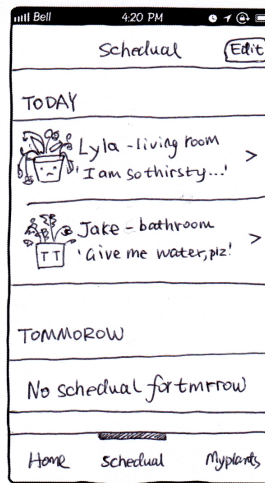 Bell 4:20 PM
Schedual Edit
TODAY
Lyla - living room >
'I am so thirsty...'
Jake - bathroom >
'Give me water, plz!'
TOMMOROW
No schedual for tmrrow
Home schedual Myplants